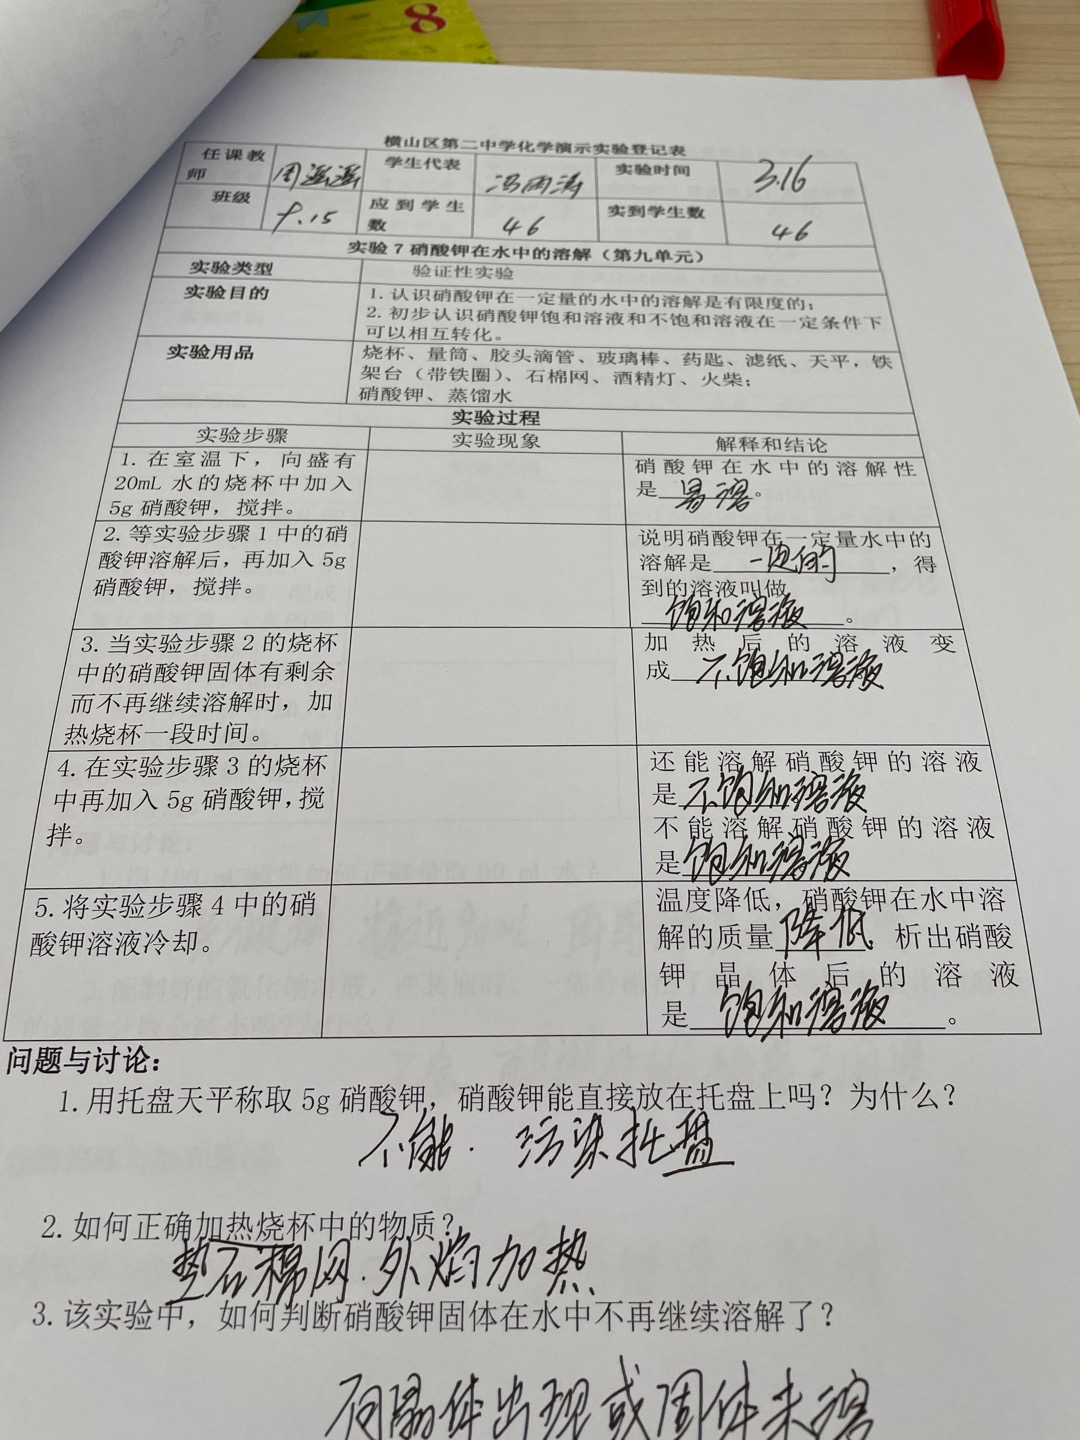 8
横山区第二中学化学演示实验登记表
任课教师 周滋滋 学生代表 冯雨涛 实验时间 3.16
班级 9.15 应到学生数 46 实到学生数 46
实验7 硝酸钾在水中的溶解（第九单元）
实验类型 验证性实验
实验目的 1.认识硝酸钾在一定量的水中的溶解是有限度的；
2.初步认识硝酸钾饱和溶液和不饱和溶液在一定条件下
可以相互转化。
实验用品 烧杯、量筒、胶头滴管、玻璃棒、药匙、滤纸、天平，铁
架台（带铁圈）、石棉网、酒精灯、火柴；
硝酸钾、蒸馏水
实验过程
实验步骤 实验现象 解释和结论
1.在室温下，向盛有
20mL 水的烧杯中加入
5g 硝酸钾，搅拌。
硝酸钾在水中的溶解性
是易溶。
2.等实验步骤1中的硝
酸钾溶解后，再加入5g
硝酸钾，搅拌。
说明硝酸钾在一定量水中的
溶解是一定的，得
到的溶液叫做
饱和溶液。
3.当实验步骤2的烧杯
中的硝酸钾固体有剩余
而不再继续溶解时，加
热烧杯一段时间。
加热后的溶液变
成不饱和溶液
4.在实验步骤3的烧杯
中再加入5g硝酸钾，搅
拌。
还能溶解硝酸钾的溶液
是不饱和溶液
不能溶解硝酸钾的溶液
是饱和溶液
5.将实验步骤4中的硝
酸钾溶液冷却。
温度降低，硝酸钾在水中溶
解的质量降低 析出硝酸
钾晶体后的溶液
是饱和溶液。
问题与讨论：
1.用托盘天平称取5g硝酸钾，硝酸钾能直接放在托盘上吗？为什么？
不能．污染托盘
2.如何正确加热烧杯中的物质？
垫石棉网．外焰加热
3.该实验中，如何判断硝酸钾固体在水中不再继续溶解了？
有晶体出现或固体未溶